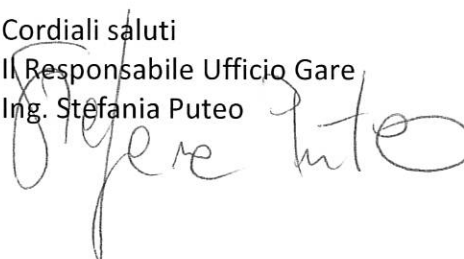 Cordiali saluti
Il Responsabile Ufficio Gare
Ing. Stefania Puteo
Stefania Puteo